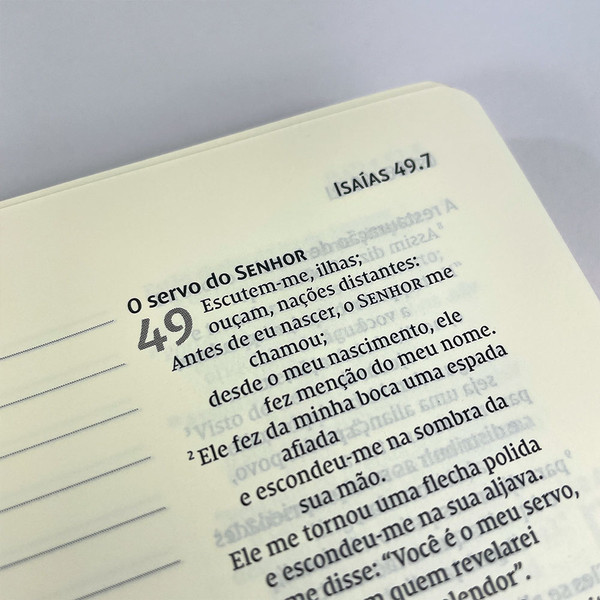 ISAÍAS 49.7
O servo do SENHOR
49 Escutem-me, ilhas;
ouçam, nações distantes:
Antes de eu nascer, o SENHOR me
chamou;
desde o meu nascimento, ele
fez menção do meu nome.
² Ele fez da minha boca uma espada
afiada
e escondeu-me na sombra da
sua mão.
Ele me tornou uma flecha polida
e escondeu-me na sua aljava.
me disse: “Você é o meu servo,
quem revelarei